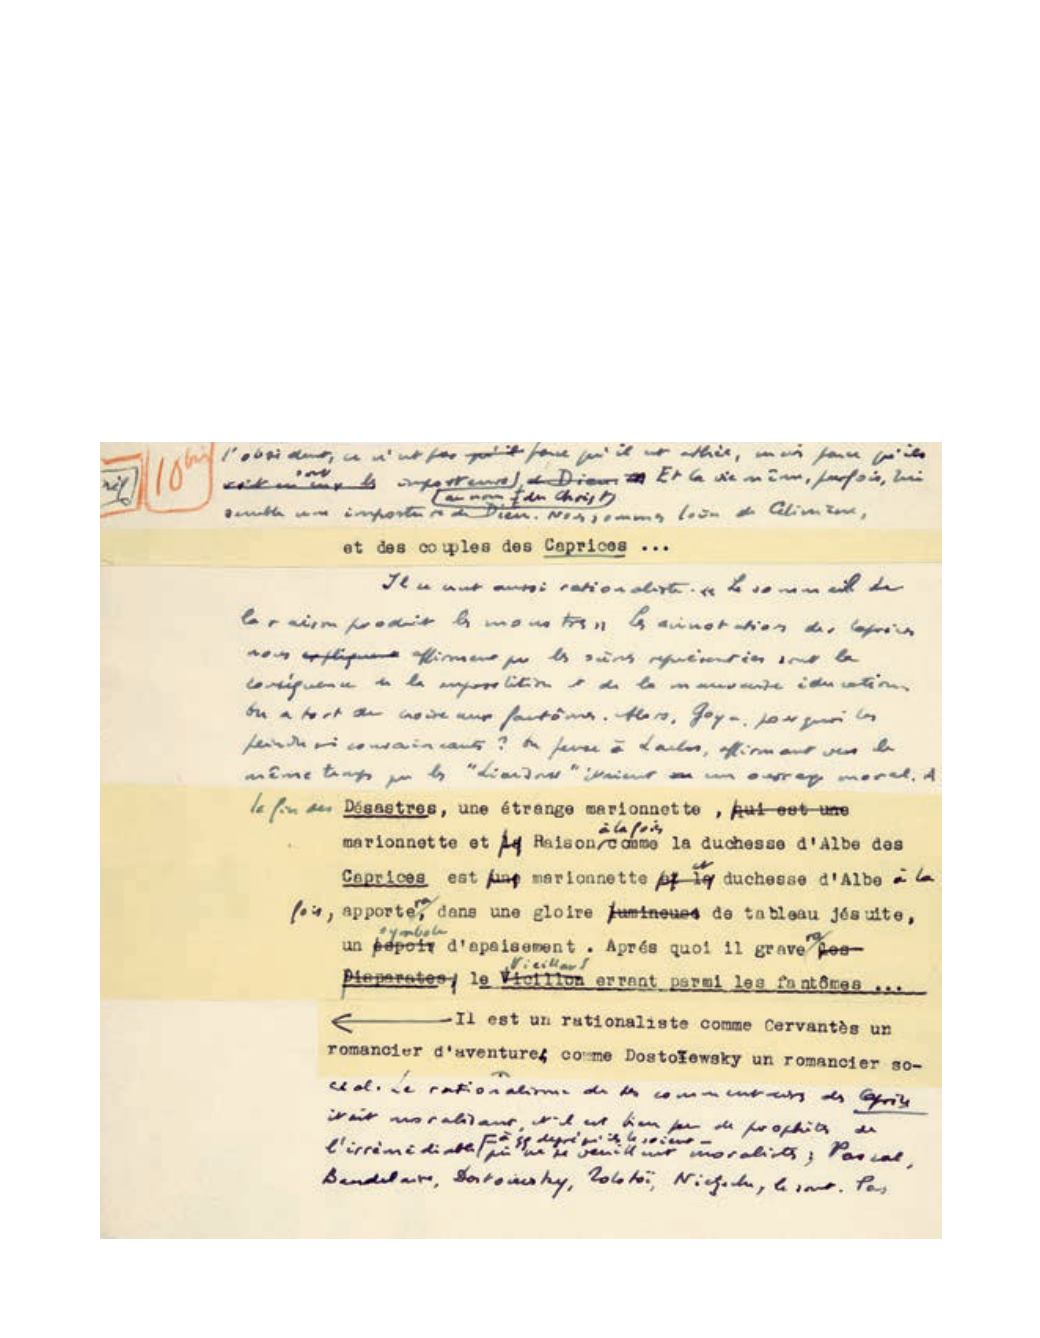 10 bis
l'obsèdent, ce n'est pas qu'il parce qu'il est athée, mais parce qu'ils
sont
imposteurs, de Dieu Et la vie même, parfois, lui
au nom du Christ
semble une imposture de Dieu. Nous sommes loin de Célimène,
et des couples des Caprices ...
Il se veut aussi rationaliste. « Le sommeil de
la raison produit les monstres » Les annotations des Caprices
nous expliquent affirment que les scènes représentées sont la
conséquence de la superstition et de la mauvaise éducation.
On a tort de croire aux fantômes. Alors, Goya, pourquoi les
peindre si convaincants ? On pense à Laclos, affirmant vers le
même temps que les "Liaisons" étaient un ouvrage moral. A
la fin des Désastres, une étrange marionnette , qui est une
à la fois
marionnette et la Raison, comme la duchesse d'Albe des
et
Caprices est une marionnette et la duchesse d'Albe à la
ra
fois, apporte, dans une gloire lumineuse de tableau jésuite,
symbole ra
un espoir d'apaisement . Aprés quoi il grave les
Vieillard
Disparates, le Vieillon errant parmi les fantômes ...
Il est un rationaliste comme Cervantès un
romancier d'aventure, comme Dostoïewsky un romancier so-
cial. Le rationalisme de ses commentaires des Caprices
était moralisant, et il est bien peu de prophètes de
à quelque degré qu'ils le soient
l'irrémédiable qui ne se veuillent moralistes ; Pascal,
Baudelaire, Dostoïewsky, Tolstoï, Nietzsche, le sont. Pas